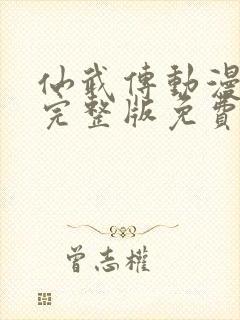 仙武傳動漫
完整版免費
曾志權